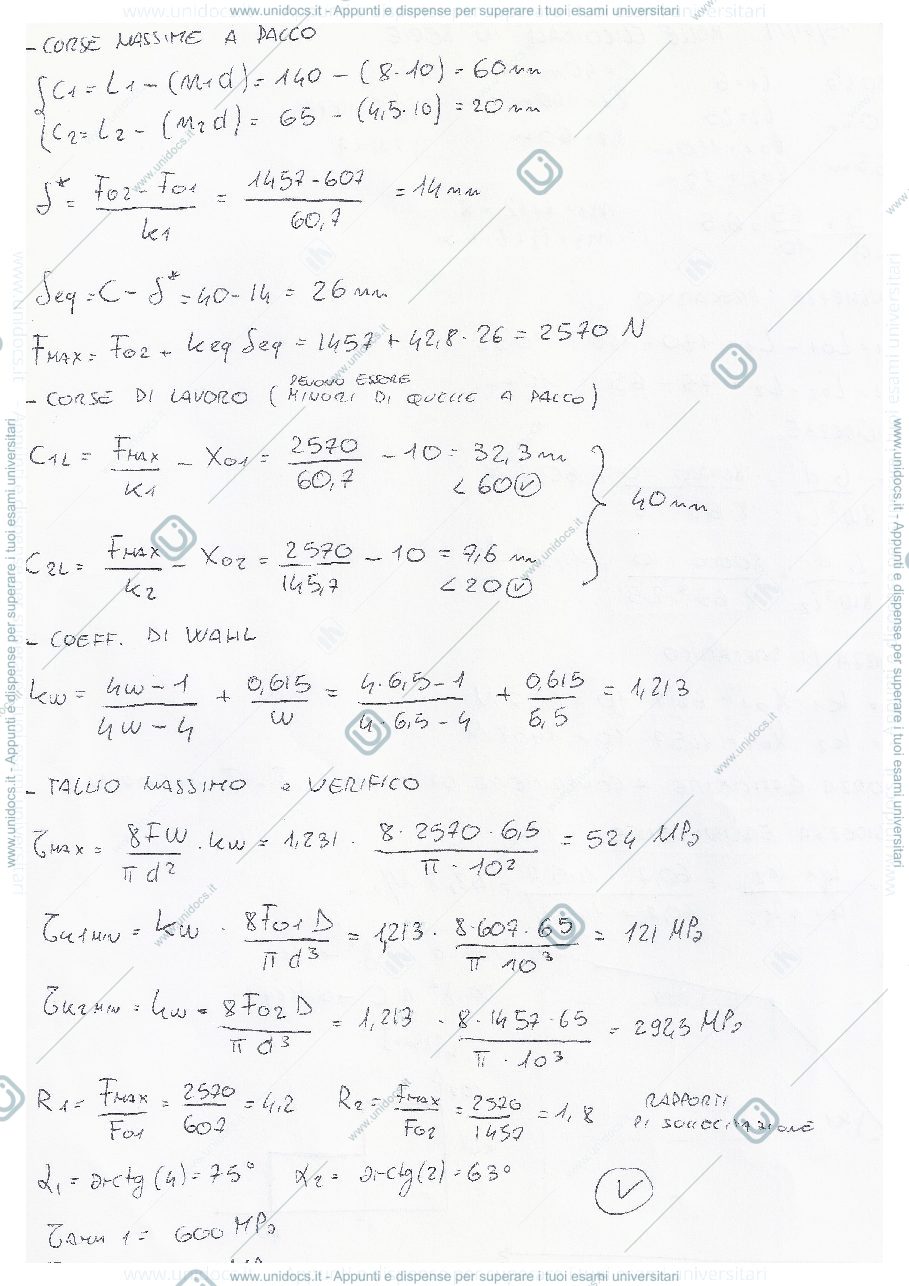 www.unidocs.it - Appunti e dispense per superare i tuoi esami universitari
- CORSE MASSIME A PACCO
C1 = L1 - (M1d) = 140 - (8·10) = 60 mm
C2 = L2 - (M2d) = 65 - (4,5·10) = 20 mm
δ* = (F02 - F01)/k1 = (1457-607)/60,7 = 14 mm
δeq = C - δ* = 40 - 14 = 26 mm
FMAX = F02 + keq δeq = 1457 + 42,8·26 = 2570 N
- CORSE DI LAVORO (DEVONO ESSERE MINORI DI QUELLE A PACCO)
C1L = FMAX/K1 - X01 = 2570/60,7 - 10 = 32,3 m
< 60 ✓
40 mm
C2L = FMAX/k2 - X02 = 2570/145,7 - 10 = 7,6 m
< 20 ✓
- COEFF. DI WAHL
kw = (4w-1)/(4w-4) + 0,615/w = (4·6,5-1)/(4·6,5-4) + 0,615/6,5 = 1,213
- TAGLIO MASSIMO e VERIFICO
τMAX = 8FW/πd² · kw = 1,231 · (8·2570·6,5)/(π·10²) = 524 MPa
τk1MIN = kw · 8F01D/πd³ = 1,213 · (8·607·65)/(π 10³) = 121 MPa
τk2MIN = kw · 8F02D/πd³ = 1,213 · (8·1457·65)/(π·10³) = 292,5 MPa
R1 = FMAX/F01 = 2570/607 = 4,2 R2 = FMAX/F02 = 2570/1457 = 1,8 RAPPORTI DI SOLLECITAZIONE
α1 = arctg(4) = 75° α2 = arctg(2) = 63° ✓
τAMM 1 = 600 MPa
www.unidocs.it - Appunti e dispense per superare i tuoi esami universitari